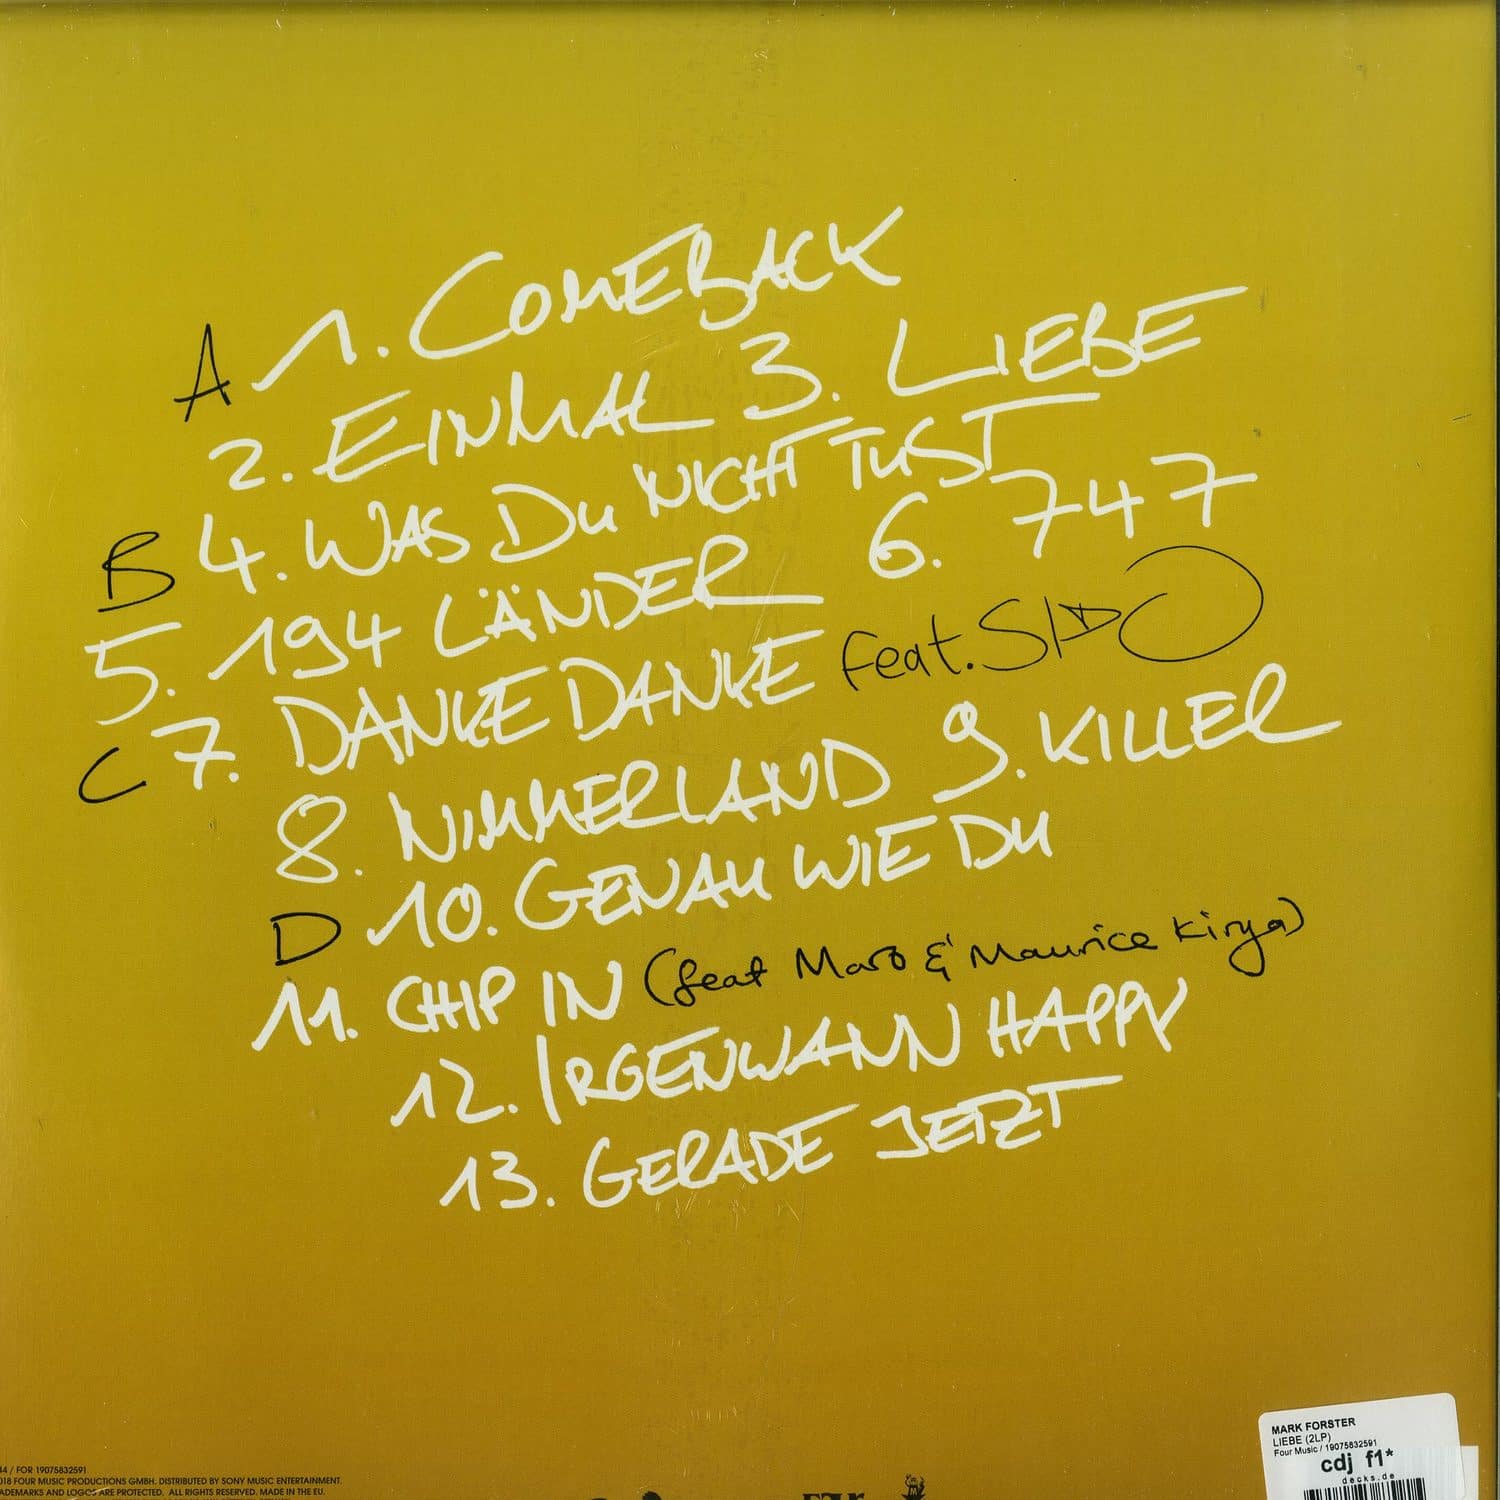 A 1. COMEBACK
2. EINMAL 3. LIEBE
B 4. WAS DU NICHT TUST
5. 194 LÄNDER 6. 747
C 7. DANKE DANKE feat. SIDO
8. NIMMERLAND 9. KILLER
D 10. GENAU WIE DU
11. CHIP IN (feat Maro & Maurice Kirya)
12. IRGENWANN HAPPY
13. GERADE JETZT
44 / FOR 19075832591
018 FOUR MUSIC PRODUCTIONS GMBH. DISTRIBUTED BY SONY MUSIC ENTERTAINMENT.
ADEMARKS AND LOGOS ARE PROTECTED. ALL RIGHTS RESERVED. MADE IN THE EU.
MARK FORSTER
LIEBE (2LP)
Four Music / 19075832591
cdj f1*
decks.de